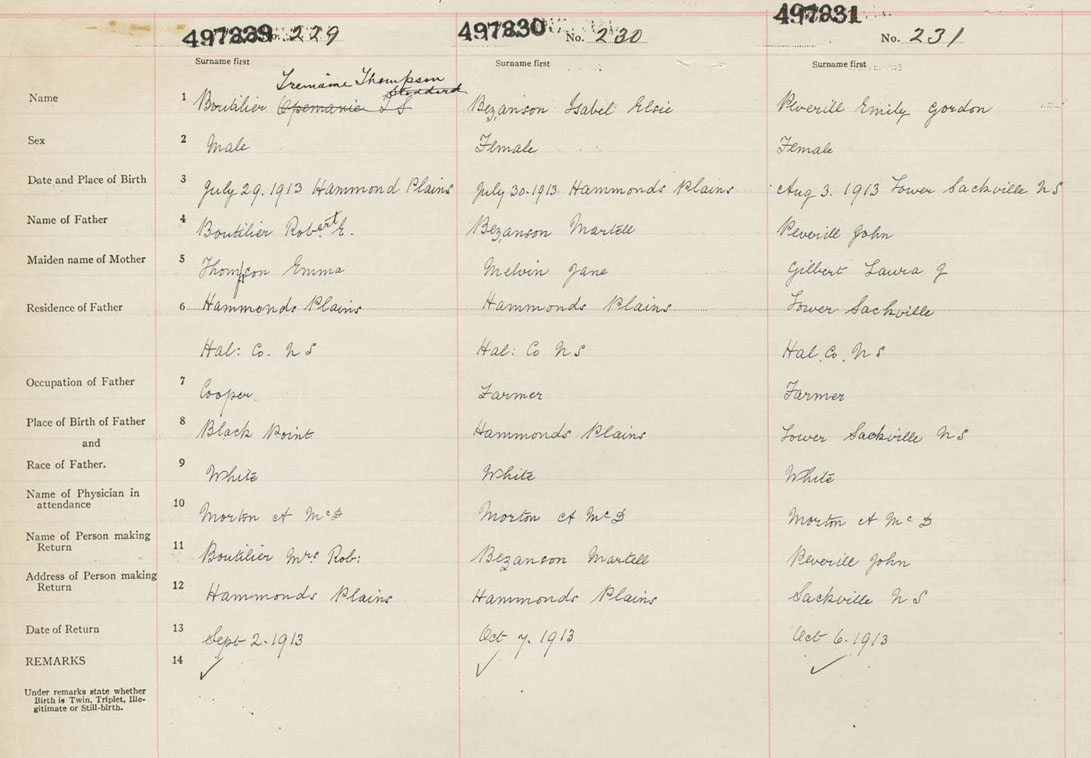 497829 229 497830 No. 230 497831 No. 231
Surname first Surname first Surname first
Tremaine Thompson
Stoddard
Name 1 Boutilier T S Bezanson Isabel Elsie Peverill Emily Gordon
Sex 2 Male Female Female
Date and Place of Birth 3 July 29. 1913 Hammond Plains July 30. 1913 Hammonds Plains Aug 3. 1913 Lower Sackville N S
Name of Father 4 Boutilier Robert E. Bezanson Martell Peverill John
Maiden name of Mother 5 Thompson Emma Melvin Jane Gilbert Laura J
Residence of Father 6 Hammonds Plains Hammonds Plains Lower Sackville
Hal: Co. N S Hal: Co N S Hal. Co. N S
Occupation of Father 7 Cooper. Farmer Farmer
Place of Birth of Father 8 Black Point Hammonds Plains Lower Sackville N S
and
Race of Father. 9 White White White
Name of Physician in
attendance 10 Morton A McD Morton A McD Morton A McD
Name of Person making
Return 11 Boutilier Mrs Rob: Bezanson Martell Peverill John
Address of Person making
Return 12 Hammonds Plains Hammonds Plains Sackville N S
Date of Return 13 Sept 2. 1913 Oct 7. 1913 Oct 6. 1913
REMARKS 14 ✓ ✓ ✓
Under remarks state whether
Birth is Twin, Triplet, Ille-
gitimate or Still-birth.